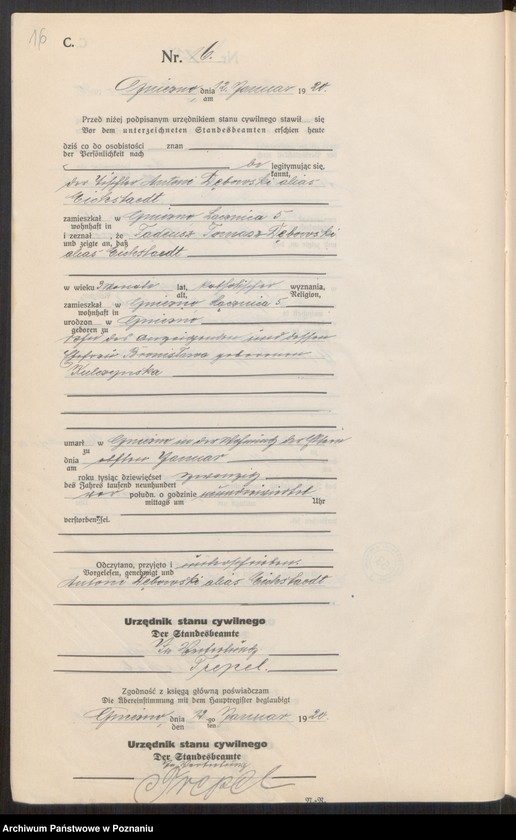 16
C.
Nr. 6.
Gniezno, dnia 12 Januar 1920.
am
Przed niżej podpisanym urzędnikiem stanu cywilnego stawił się
Vor dem unterzeichneten Standesbeamten erschien heute
dziś co do osobistości znan
der Persönlichkeit nach
be legitymując się,
kannt,
der Tischler Antoni Dębowski alias
Eichstaedt
zamieszkał w Gniezno Łącznica 5
wohnhaft in
i zeznał, że Tadeusz Tomasz Dębowski
und zeigte an, daß
alias Eichstaedt
w wieku 3 Monate lat, katholischer wyznania,
alt, Religion,
zamieszkał w Gniezno Łącznica 5
wohnhaft in
urodzon w Gniezno
geboren zu
Sohn des Anzeigenden und dessen
Ehefrau Bronisława geborenen
Kulczynska
umarł w Gniezno in der Wohnung der Eltern
zu
dnia elften Januar
am
roku tysiąc dziewięćset zwanzig
des Jahres tausend neunhundert
vor połudn. o godzinie
mittags um Uhr
verstorben sei.
Odczytano, przyjęto i unterschrieben.
Vorgelesen, genehmigt und
Antoni Dębowski alias Eichstaedt
Urzędnik stanu cywilnego
Der Standesbeamte
In Vertretung
Trepel.
Zgodność z księgą główną poświadczam
Die Übereinstimmung mit dem Hauptregister beglaubigt
Gniezno, dnia 12 go Januar 1920.
den ten
Urzędnik stanu cywilnego
Der Standesbeamte
In Vertretung
Trepel
Archiwum Państwowe w Poznaniu